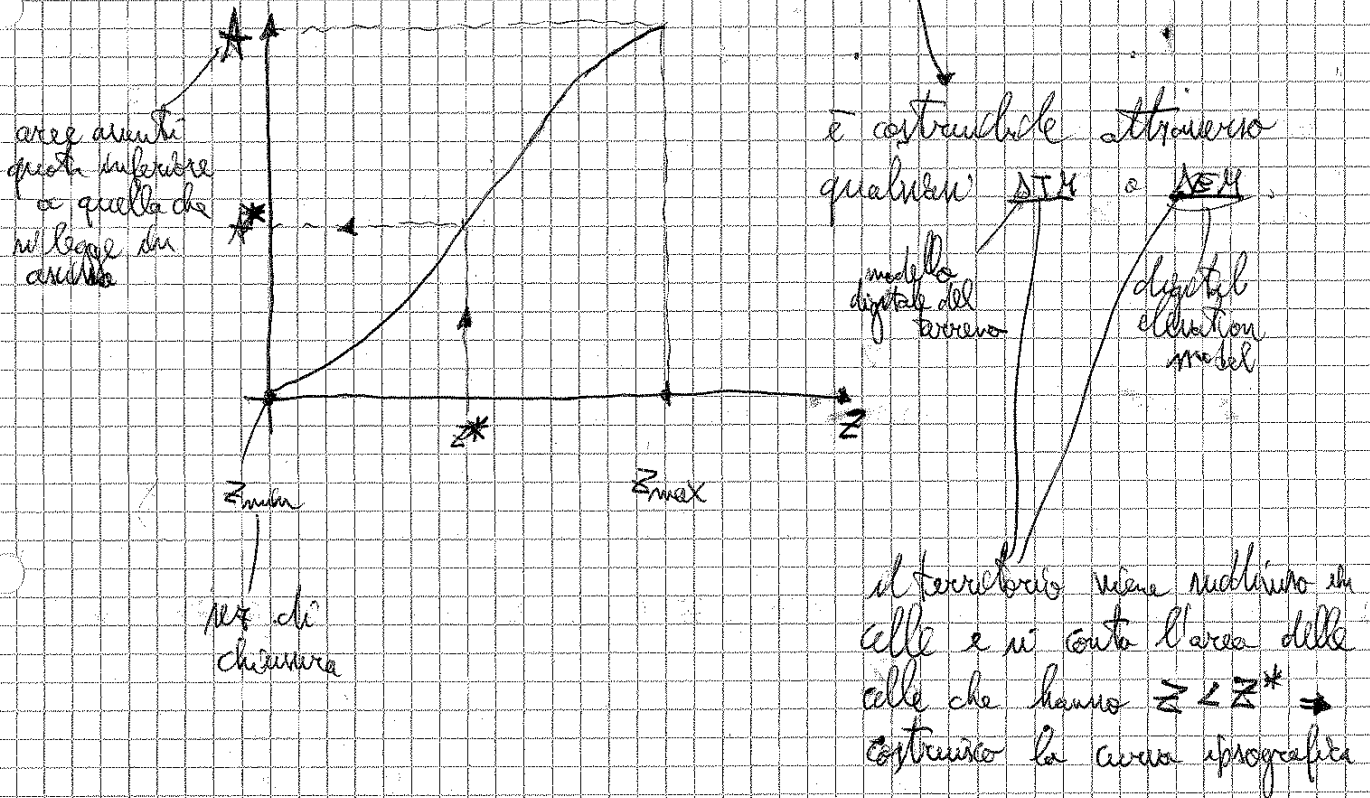 A
aree aventi
quota inferiore
a quella che
si legge in
ascissa
A*
z*
z
zmin
zmax
sez di
chiusura
è costruibile attraverso
qualsiasi DTM o DEM.
modello
digitale del
terreno
digital
elevation
model
il territorio viene suddiviso in
celle e si conta l'area delle
celle che hanno z < z* ⇒
costruisco la curva ipsografica